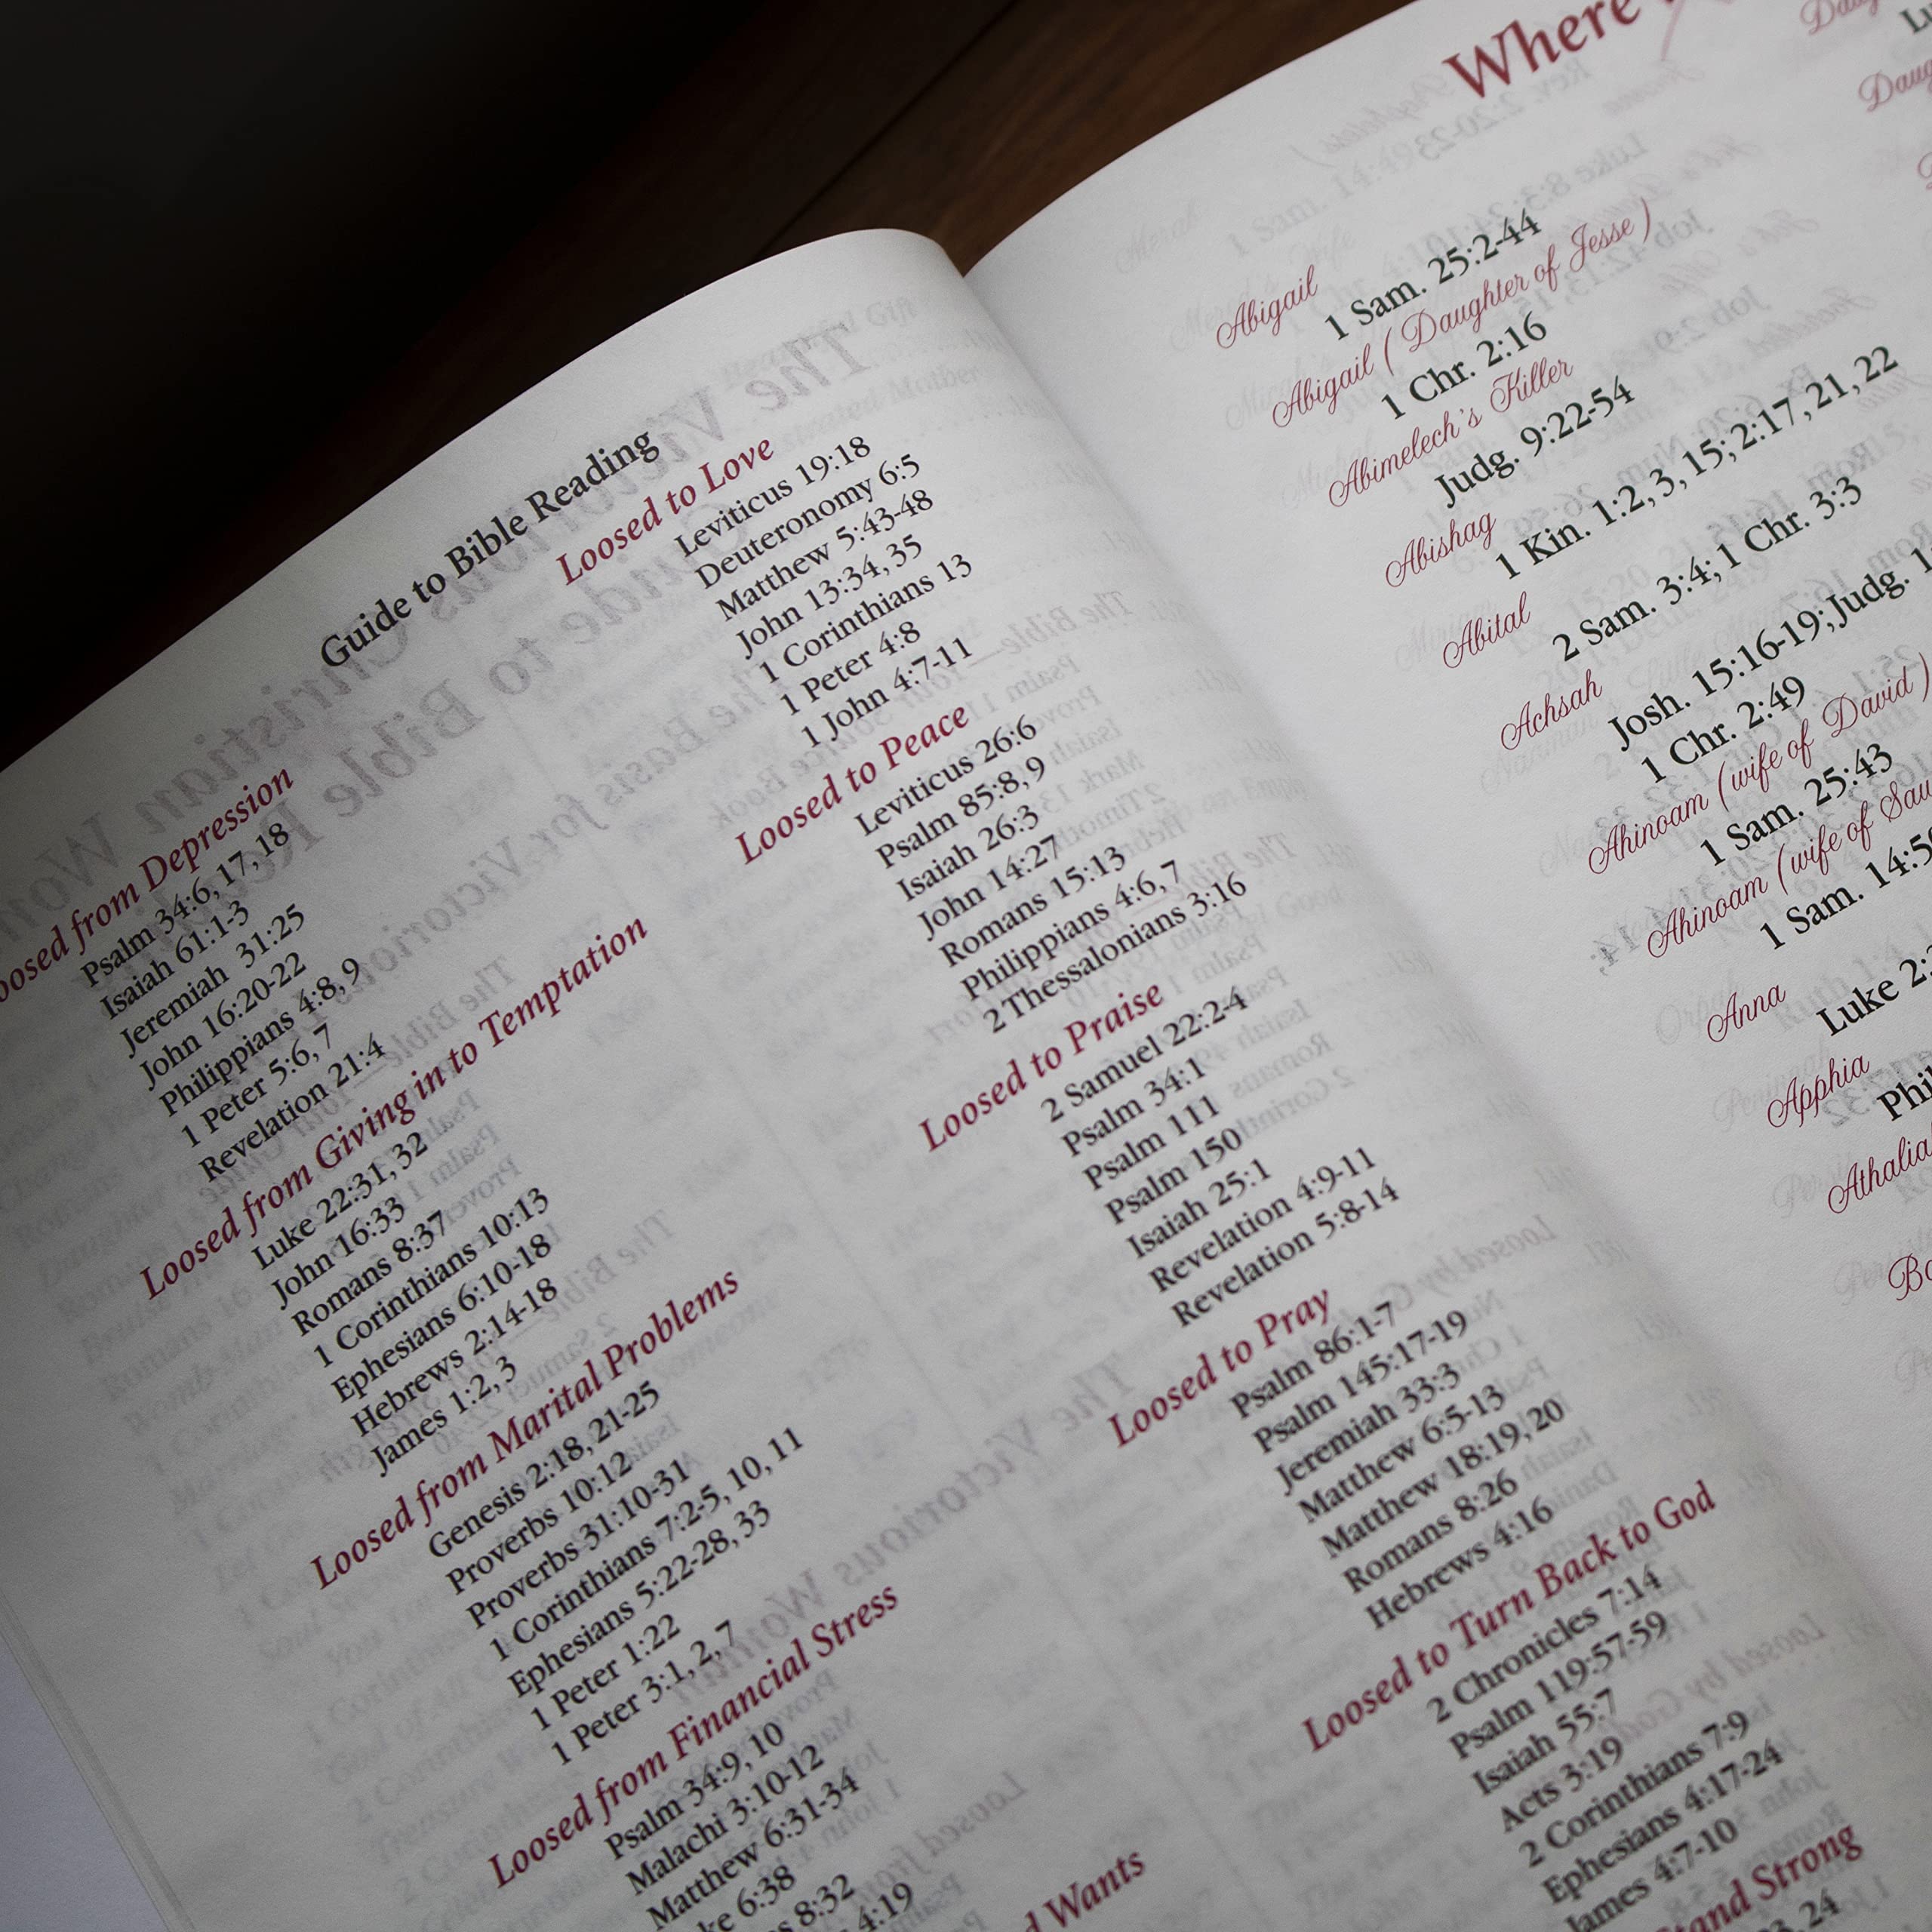 Guide to Bible Reading
from Depression
Psalm 34:6, 17, 18
Isaiah 61:1-3
Jeremiah 31:25
John 16:20-22
Philippians 4:8, 9
1 Peter 5:6, 7
Revelation 21:4
Loosed from Giving in to Temptation
Luke 22:31, 32
John 16:33
Romans 8:37
1 Corinthians 10:13
Ephesians 6:10-18
Hebrews 2:14-18
James 1:2, 3
Loosed from Marital Problems
Genesis 2:18, 21-25
Proverbs 10:12
Proverbs 31:10-31
1 Corinthians 7:2-5, 10, 11
Ephesians 5:22-28, 33
1 Peter 1:22
1 Peter 3:1, 2, 7
Loosed from Financial Stress
Psalm 34:9, 10
Malachi 3:10-12
Matthew 6:31-34
6:38
8:32
4:19
Wants
Loosed to Love
Leviticus 19:18
Deuteronomy 6:5
Matthew 5:43-48
John 13:34, 35
1 Corinthians 13
1 Peter 4:8
1 John 4:7-11
Loosed to Peace
Leviticus 26:6
Psalm 85:8, 9
Isaiah 26:3
John 14:27
Romans 15:13
Philippians 4:6, 7
2 Thessalonians 3:16
Loosed to Praise
2 Samuel 22:2-4
Psalm 34:1
Psalm 111
Psalm 150
Isaiah 25:1
Revelation 4:9-11
Revelation 5:8-14
Loosed to Pray
Psalm 86:1-7
Psalm 145:17-19
Jeremiah 33:3
Matthew 6:5-13
Matthew 18:19, 20
Romans 8:26
Hebrews 4:16
Loosed to Turn Back to God
2 Chronicles 7:14
Psalm 119:57-59
Isaiah 55:7
Acts 3:19
2 Corinthians 7:9
Ephesians 4:17-24
James 4:7-10
Strong
24
Where
Abigail
1 Sam. 25:2-44
Abigail (Daughter of Jesse)
1 Chr. 2:16
Abimelech's Killer
Judg. 9:22-54
Abishag
1 Kin. 1:2, 3, 15; 2:17, 21, 22
Abital
2 Sam. 3:4; 1 Chr. 3:3
Achsah
Josh. 15:16-19; Judg.
1 Chr. 2:49
Ahinoam (wife of David)
1 Sam. 25:43
Ahinoam (wife of
1 Sam.
Anna
Luke
Apphia